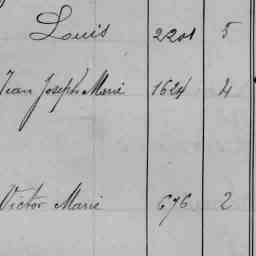 Louis 2201 5
Jean Joseph Marie 1624 4
Victor Marie 676 2